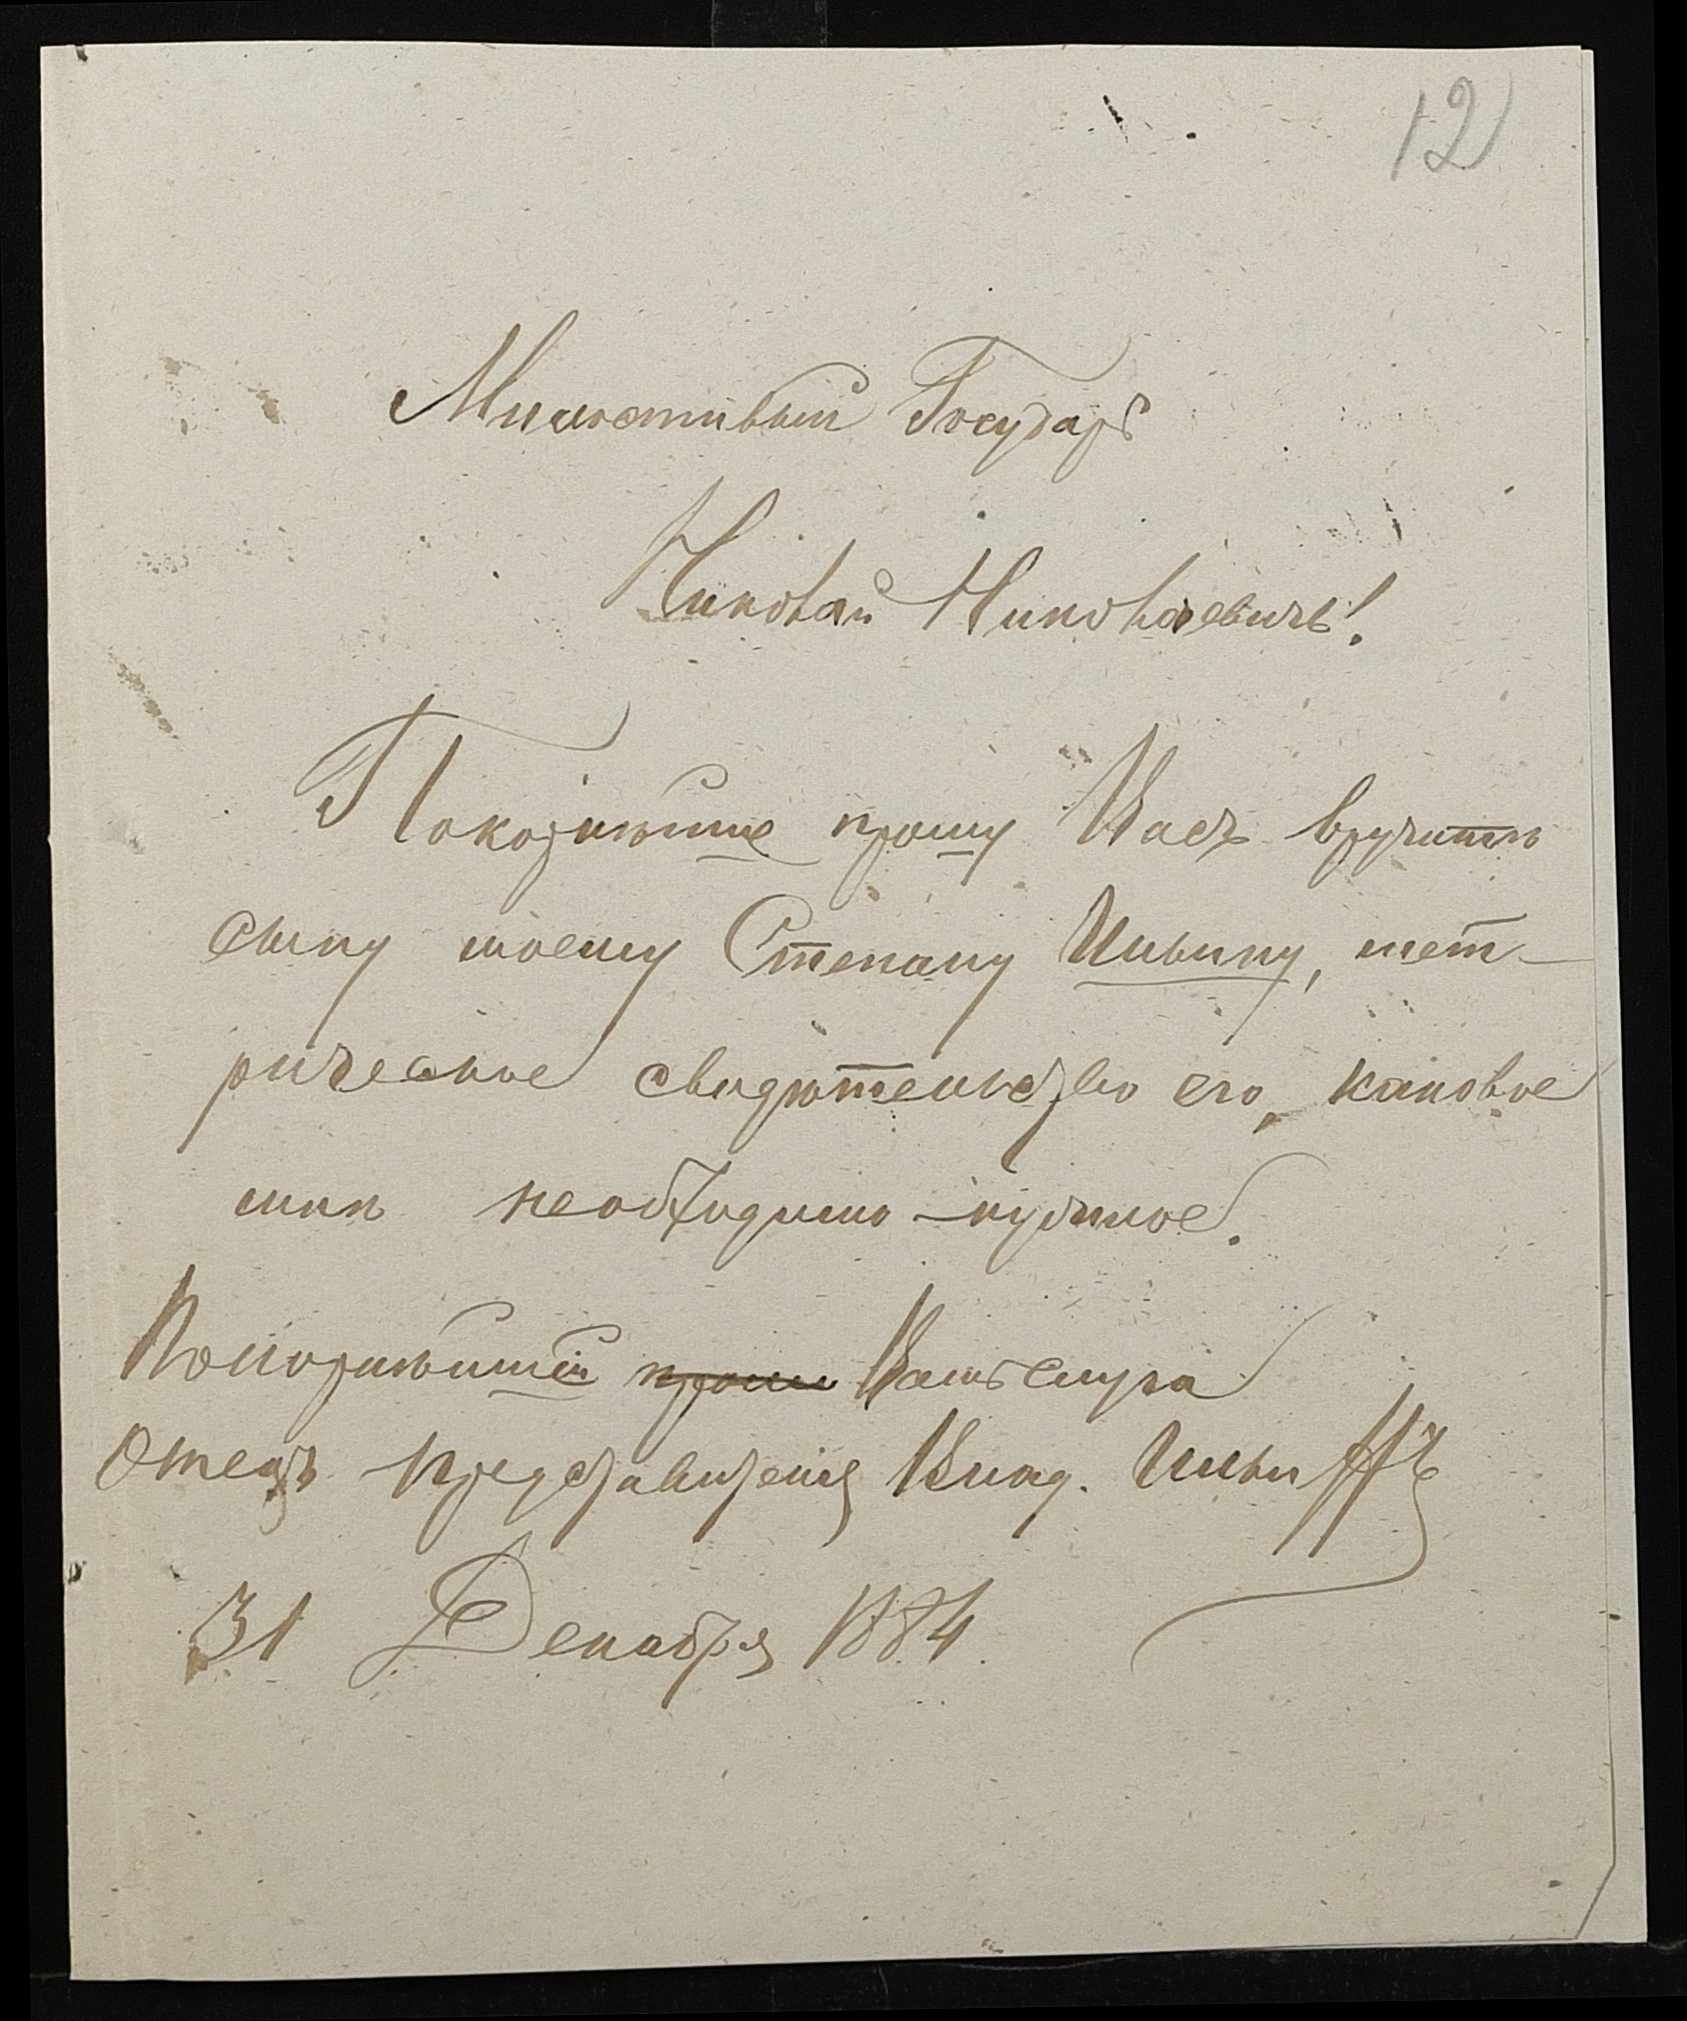 12
Милостивый Государь
Николай Николаевичъ!
Покорнѣйше прошу Васъ вручить
сыну моему Степану Ильину, мет-
рическое свидѣтельство его, каковое
мнѣ необходимо нужное.
Покорнѣйшій прошу Вашъ слуга
Отецъ представителя Влад. Ильинъ
31 Декабря 1884